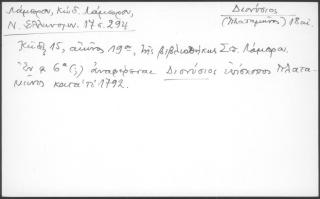 Λάμπρου, Κώδ. Λάμπρου,
Ν. Ἑλληνομν. 17 σ. 294
Διονύσιος
(Πλαταμῶνος) 18 αἰ.
Κῶδιξ 15, αἰῶνος 19ου, τῆς βιβλιοθήκης Σπ. Λάμπρου.
Ἐν φ. 6α (;) ἀναφέρεται Διονύσιος ἐπίσκοπος Πλατα-
μῶνος κατὰ τὸ 1792.